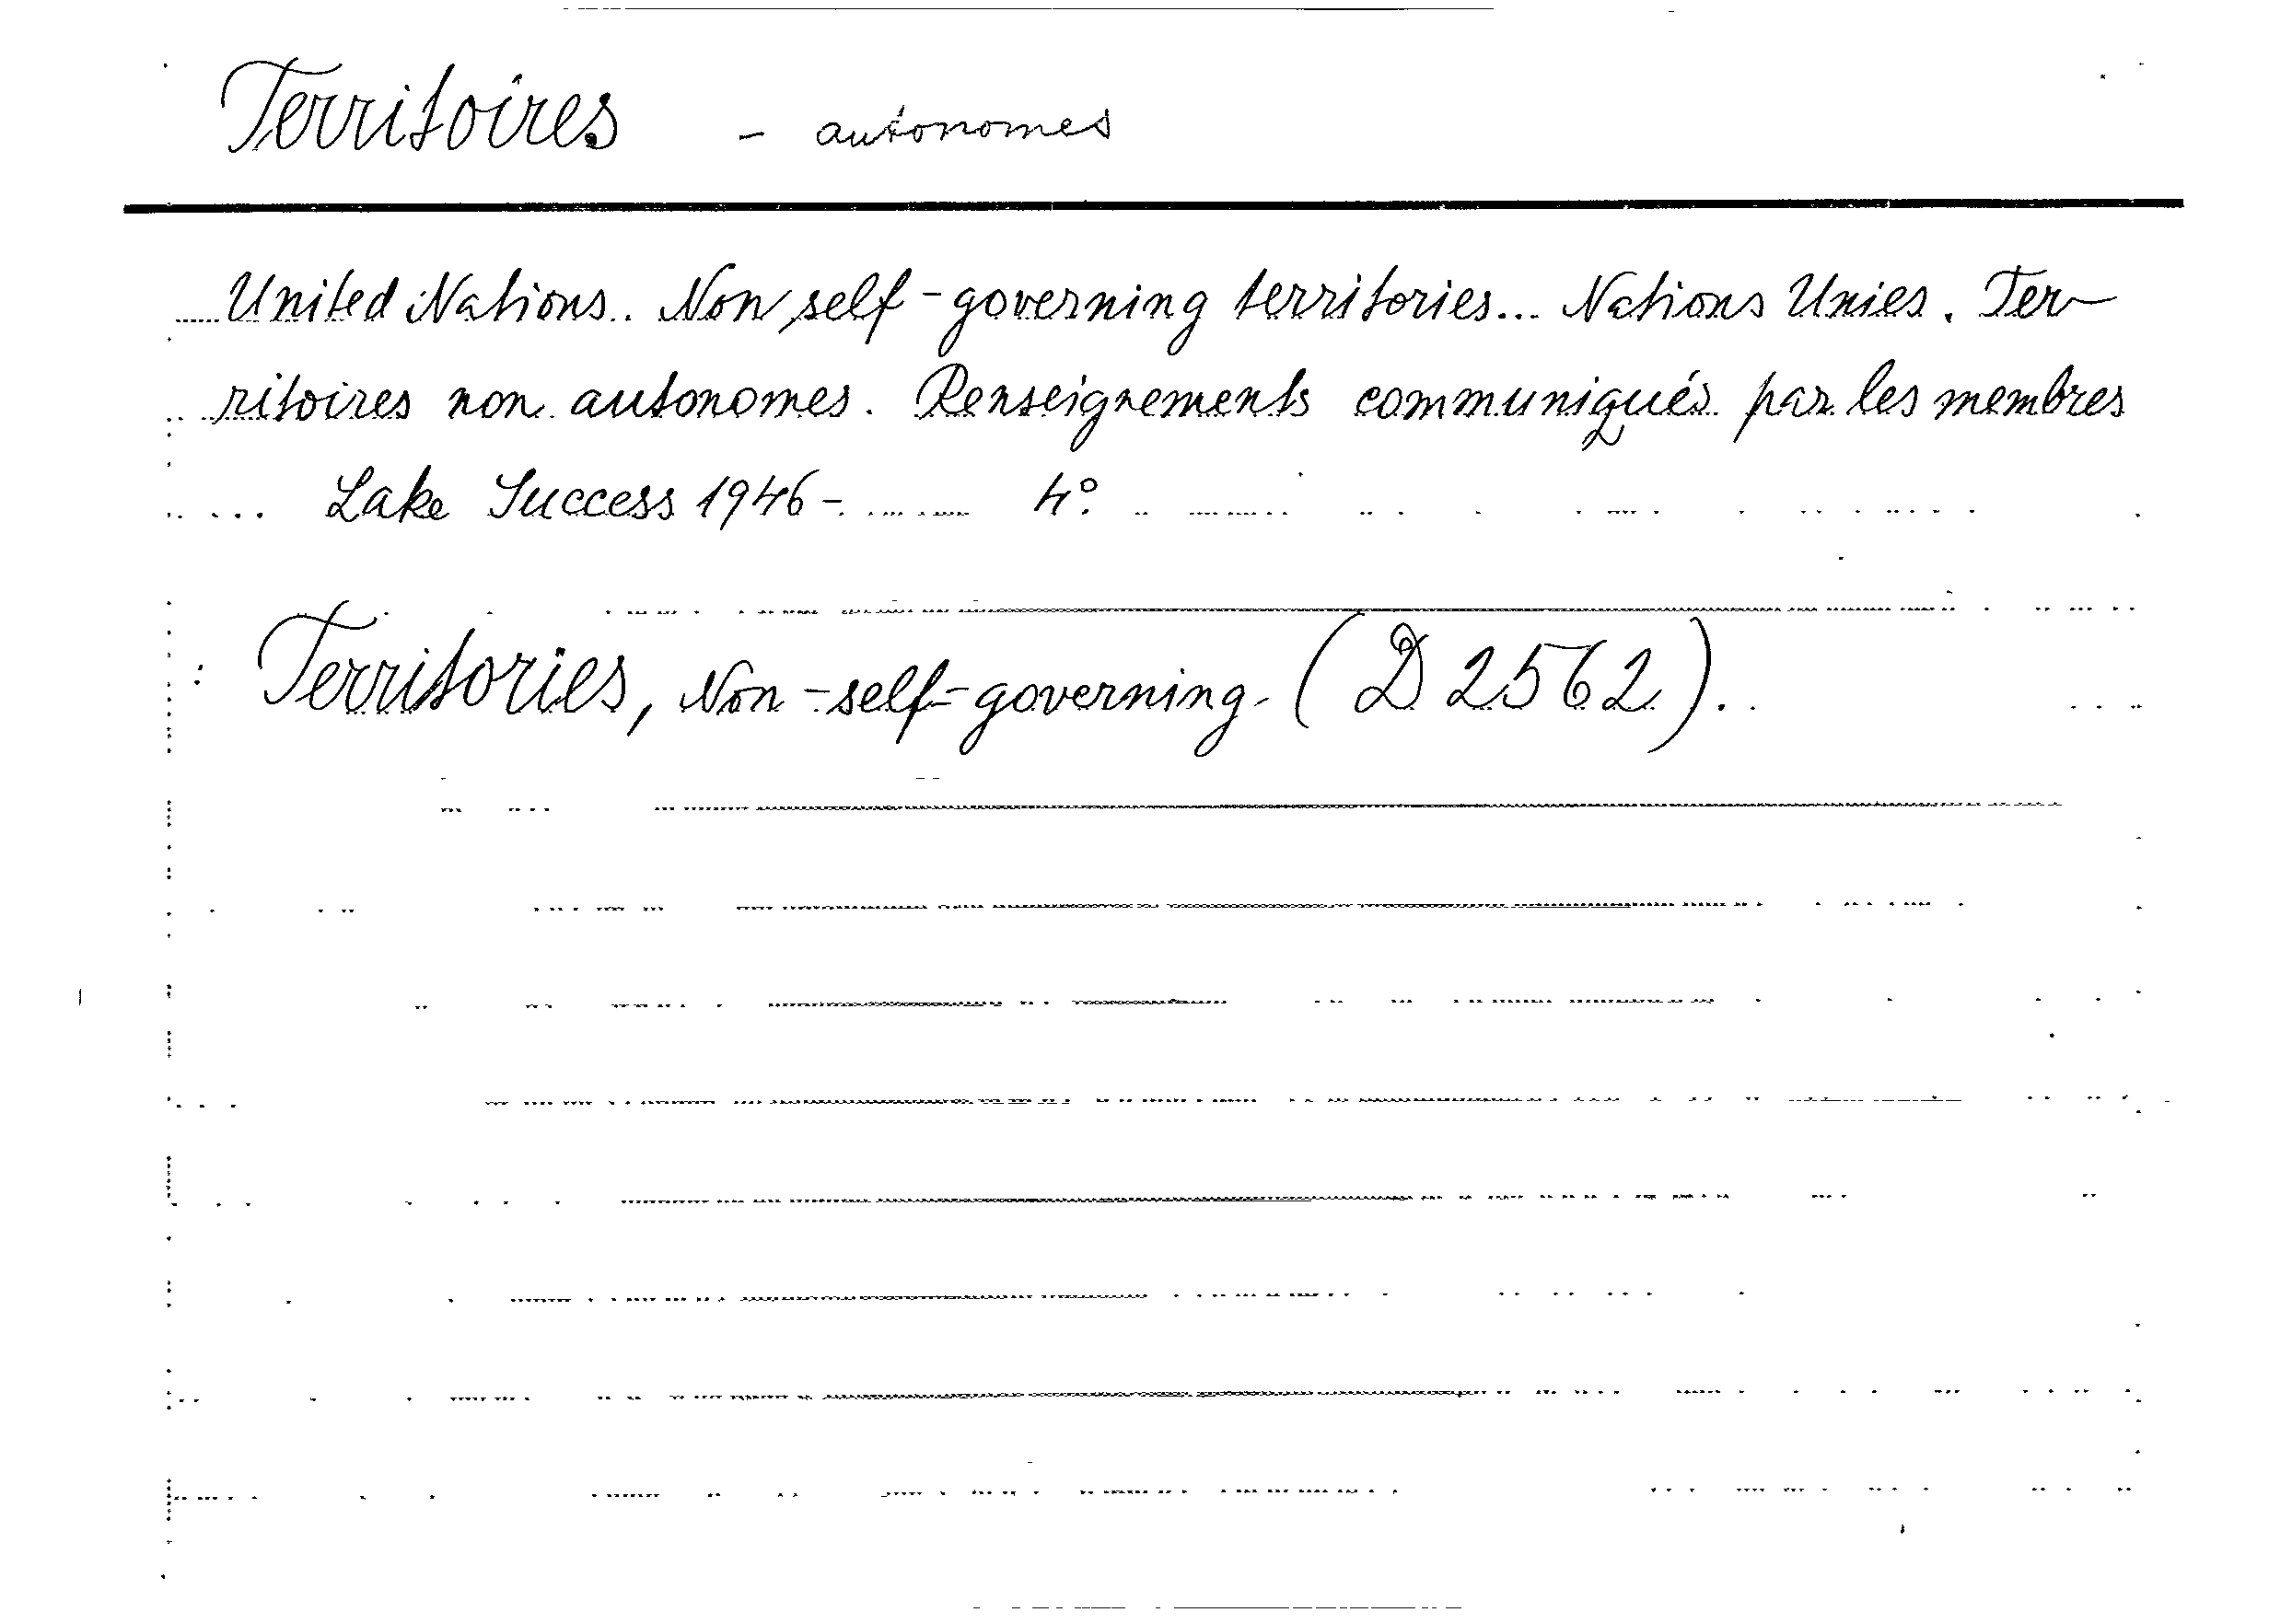 Territoires - autonomes
United Nations.. Non self-governing territories... Nations Unies. Ter-
ritoires non autonomes. Renseignements communiqués par les membres
Lake Success 1946- 4°.
Territories, Non-self-governing. (D 2562).